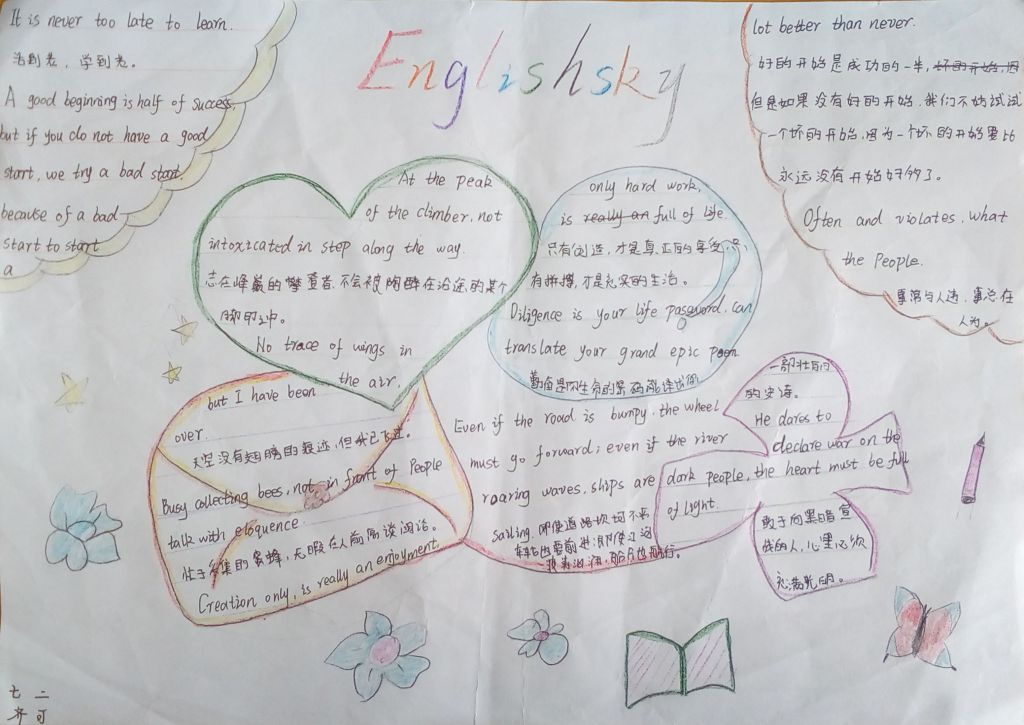 Englishsky
It is never too late to learn.
活到老，学到老。
A good beginning is half of success,
but if you do not have a good
start, we try a bad start,
because of a bad
start to start
a
lot better than never.
好的开始是成功的一半，坏的开始，因
但是如果没有好的开始，我们不妨试试
一个坏的开始，因为一个坏的开始要比
永远没有开始好的多了。
Often and violates, what
the People.
事常与人违，事总在
人为。
At the peak
of the climber, not
intoxicated in step along the way.
志在峰巅的攀登者，不会被陶醉在沿途的某个
脚印之中。
No trace of wings in
the air,
but I have been
over.
天空没有翅膀的痕迹，但我已飞过。
Busy collecting bees, not in front of People
talk with eloquence.
忙于采集的蜜蜂，无暇在人前高谈阔论。
Creation only, is really an enjoyment
only hard work,
is really an full of life.
只有创造，才是真正的享受，只
有拼搏，才是充实的生活。
Diligence is your life password, can
translate your grand epic poem.
勤奋是你生命的密码，能译出你
一部壮丽的
的史诗。
Even if the road is bumpy, the wheel
must go forward; even if the river
roaring waves, ships are
sailing. 即使道路坎坷不平
车轮也要前进；即使江河
波涛汹涌，船只也航行。
He dares to
declare war on the
dark people, the heart must be full
of light.
敢于向黑暗宣
战的人，心里必须
充满光明。
七 二
齐 可